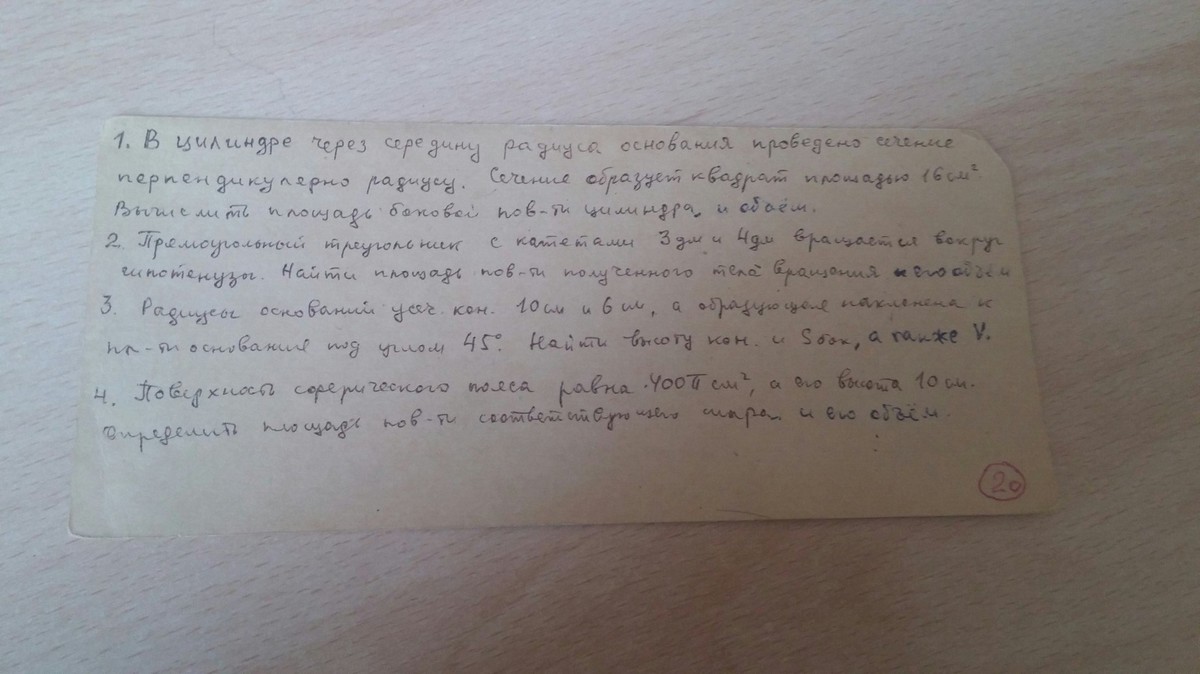 1. В цилиндре через середину радиуса основания проведено сечение
перпендикулярно радиусу. Сечение образует квадрат площадью 16 см².
Вычислить площадь боковой пов-ти цилиндра и объём.
2. Прямоугольный треугольник с катетами 3дм и 4дм вращается вокруг
гипотенузы. Найти площадь пов-ти полученного тела вращения и его объём
3. Радиусы оснований усеч. кон. 10 см и 6 см, а образующая наклонена к
пл-ти основания под углом 45°. Найти высоту кон. и Sбок, а также V.
4. Поверхность сферического пояса равна 400π см², а его высота 10 см.
Определить площадь пов-ти соответствующего шара и его объём.
20